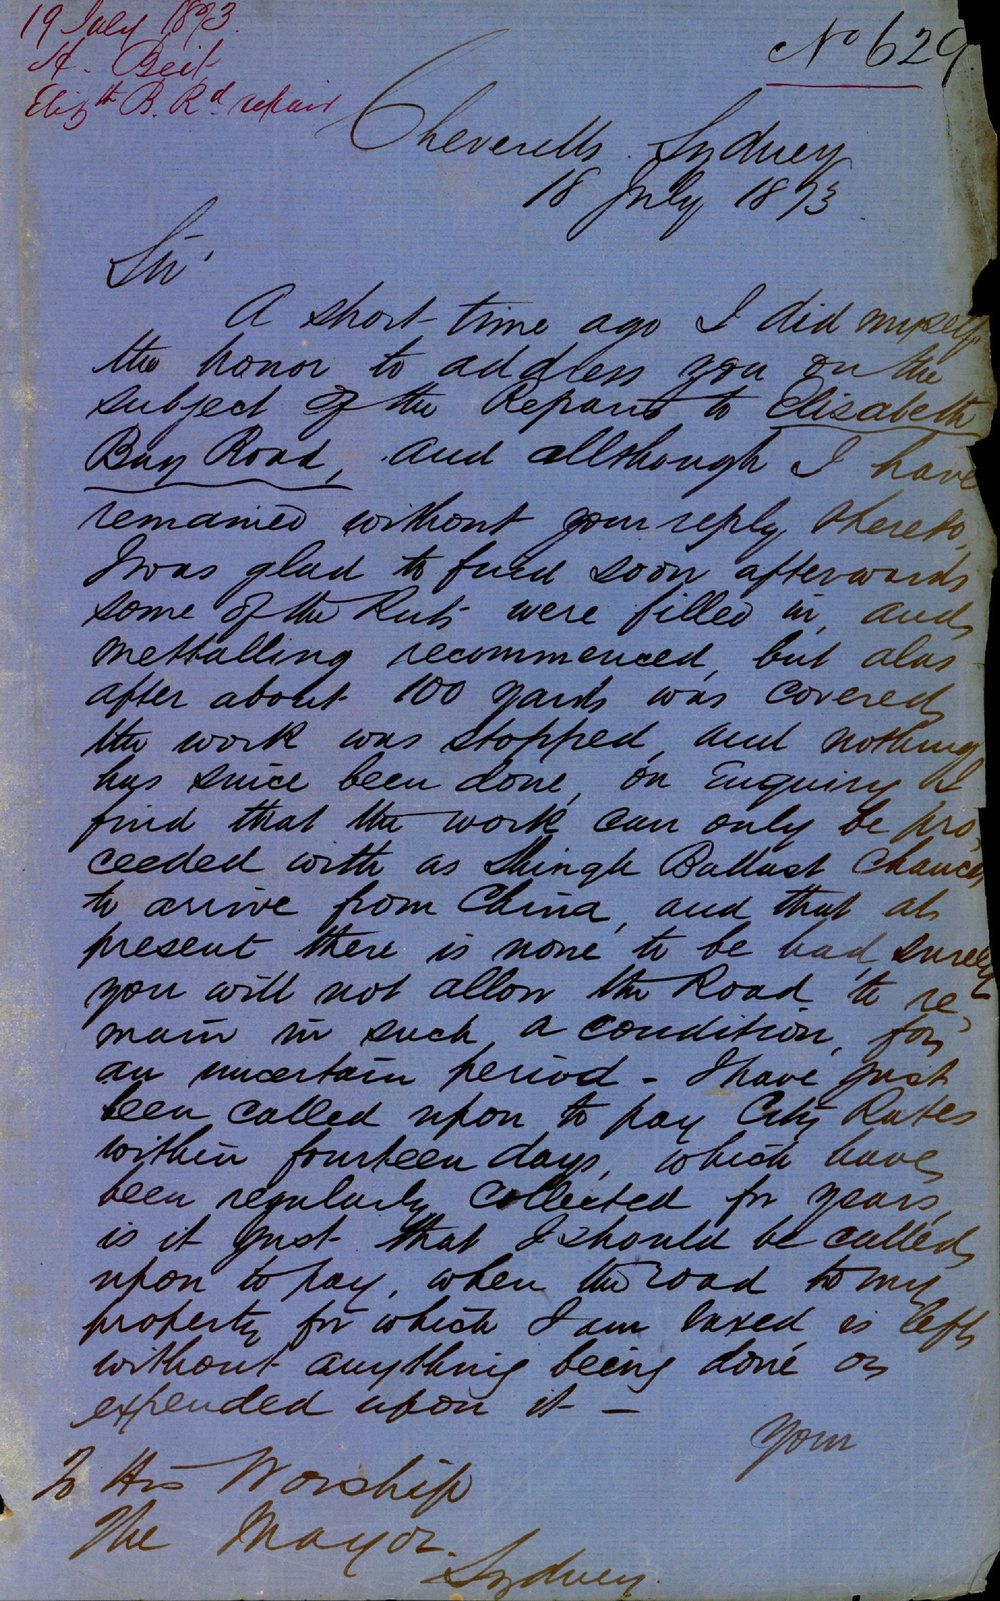 19 July 1873.
H. Beit
Eliz.th B. Rd. repair
No 629
Cheverells. Sydney
18 July 1873.
Sir'
A short time ago I did myself
the honor to address you on the
subject of the Repairs to Elisabeth
Bay Road, and allthough I have
remained without your reply thereto,
I was glad to find soon afterwards
some of the Ruts were filled in, and
mettalling recommenced, but alas
after about 100 yards was covered
the work was stopped, and nothing
has since been done, on Enquiry I
find that the work can only be pro-
ceeded with as Shingle Ballast Chances
to arrive from China, and that at
present there is none to be had, surely
you will not allow the Road to re-
main in such a condition, for
an uncertain period - I have just
been called upon to pay City Rates
within fourteen days, which have
been regularly collected for years,
is it just that I should be called
upon to pay, when the road to my
property for which I am taxed is left
without anything being done or
expended upon it -
Your
To His Worship
The Mayor.
Sydney.